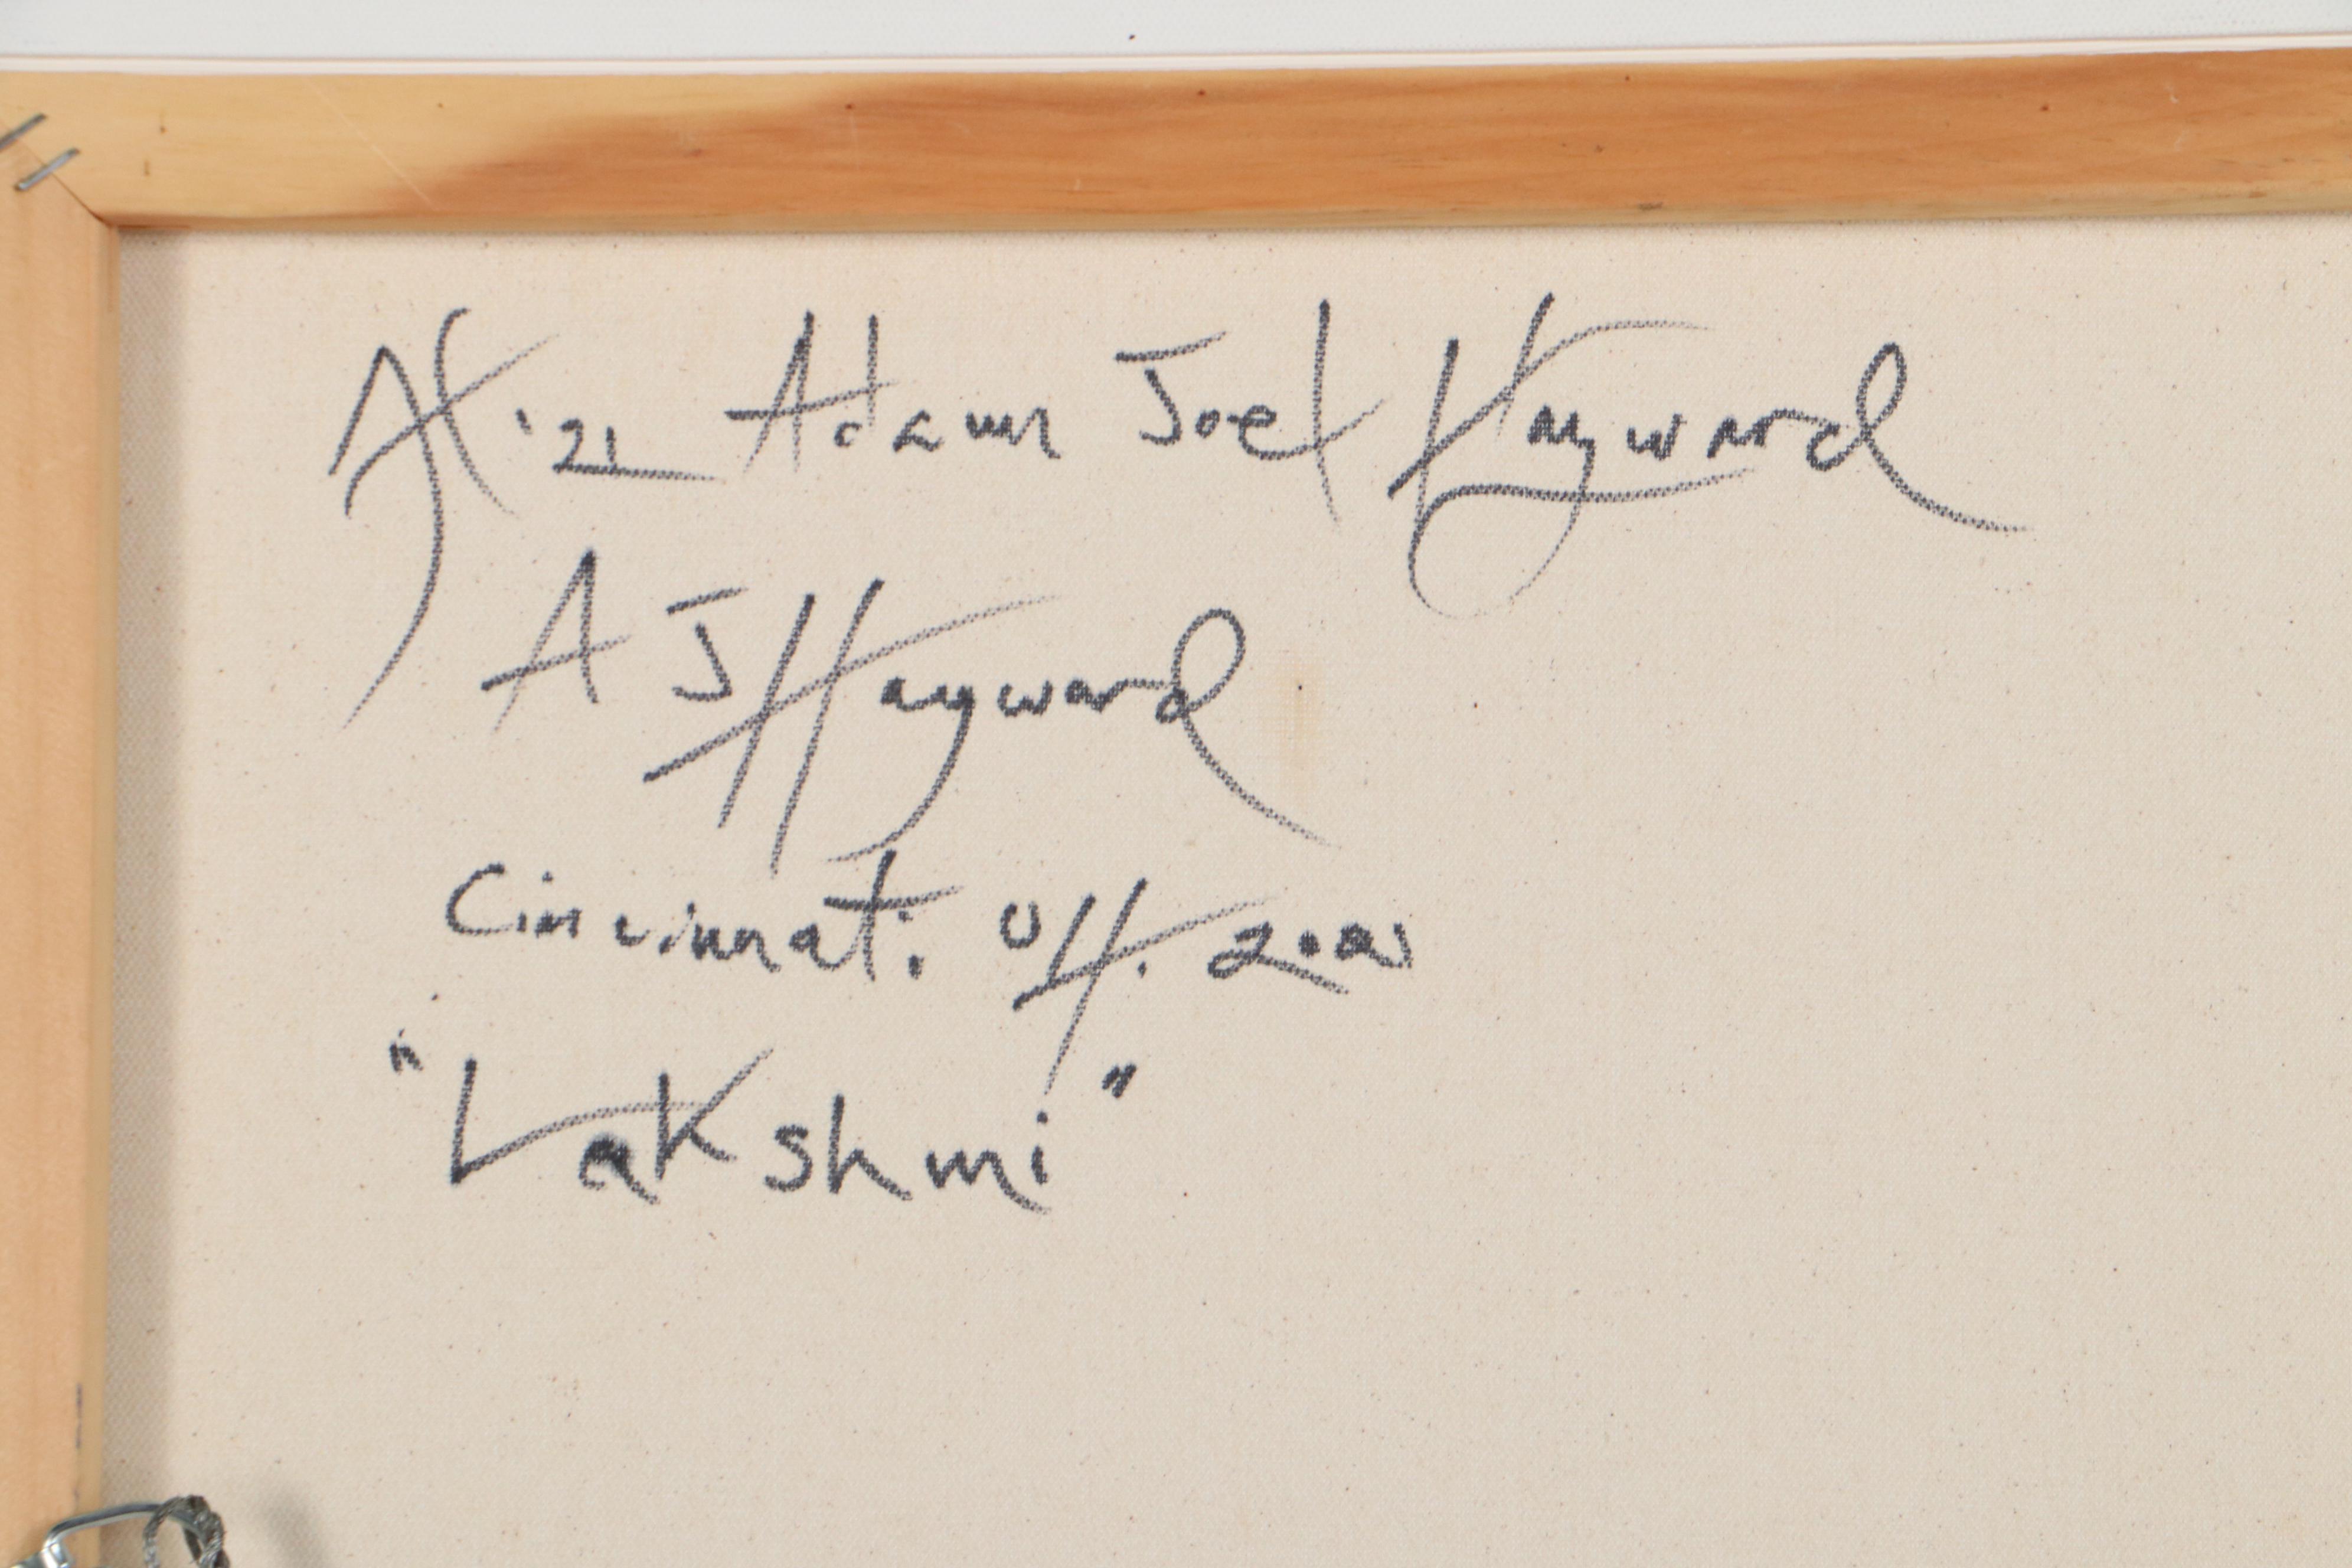 AH '21 Adam Joel Hayward
A J Hayward
Cincinnati OH. 2021
"Lakshmi"